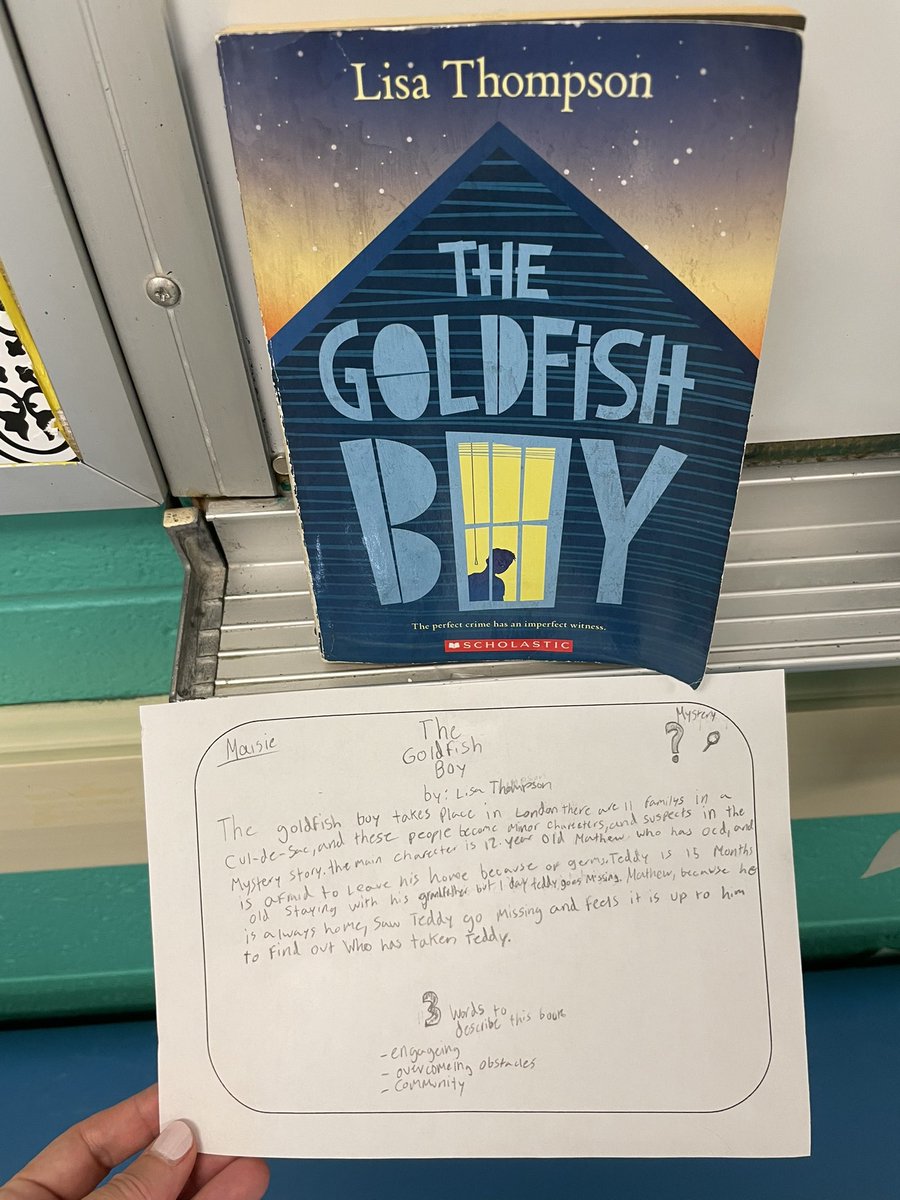 Lisa Thompson
THE
GOLDFISH
BOY
The perfect crime has an imperfect witness.
SCHOLASTIC
Mausie
The
Goldfish
Boy
by: Lisa Thompson
Mystery
?
The goldfish boy takes place in London there are 11 familys in a
Cul-de-Sac, and these people become minor charecters, and suspects in the
Mystery story. the main charecter is 12-year old Mathew. who has ocd, and
is afraid to leave his home because of germs. Teddy is 15 Months
old staying with his grandfather but 1 day teddy goes missing. Mathew, because he
is always home, saw Teddy go missing and feels it is up to him
to find out who has taken Teddy.
3 words to
describe this book
- engageing
- overcomeing obstacles
- community